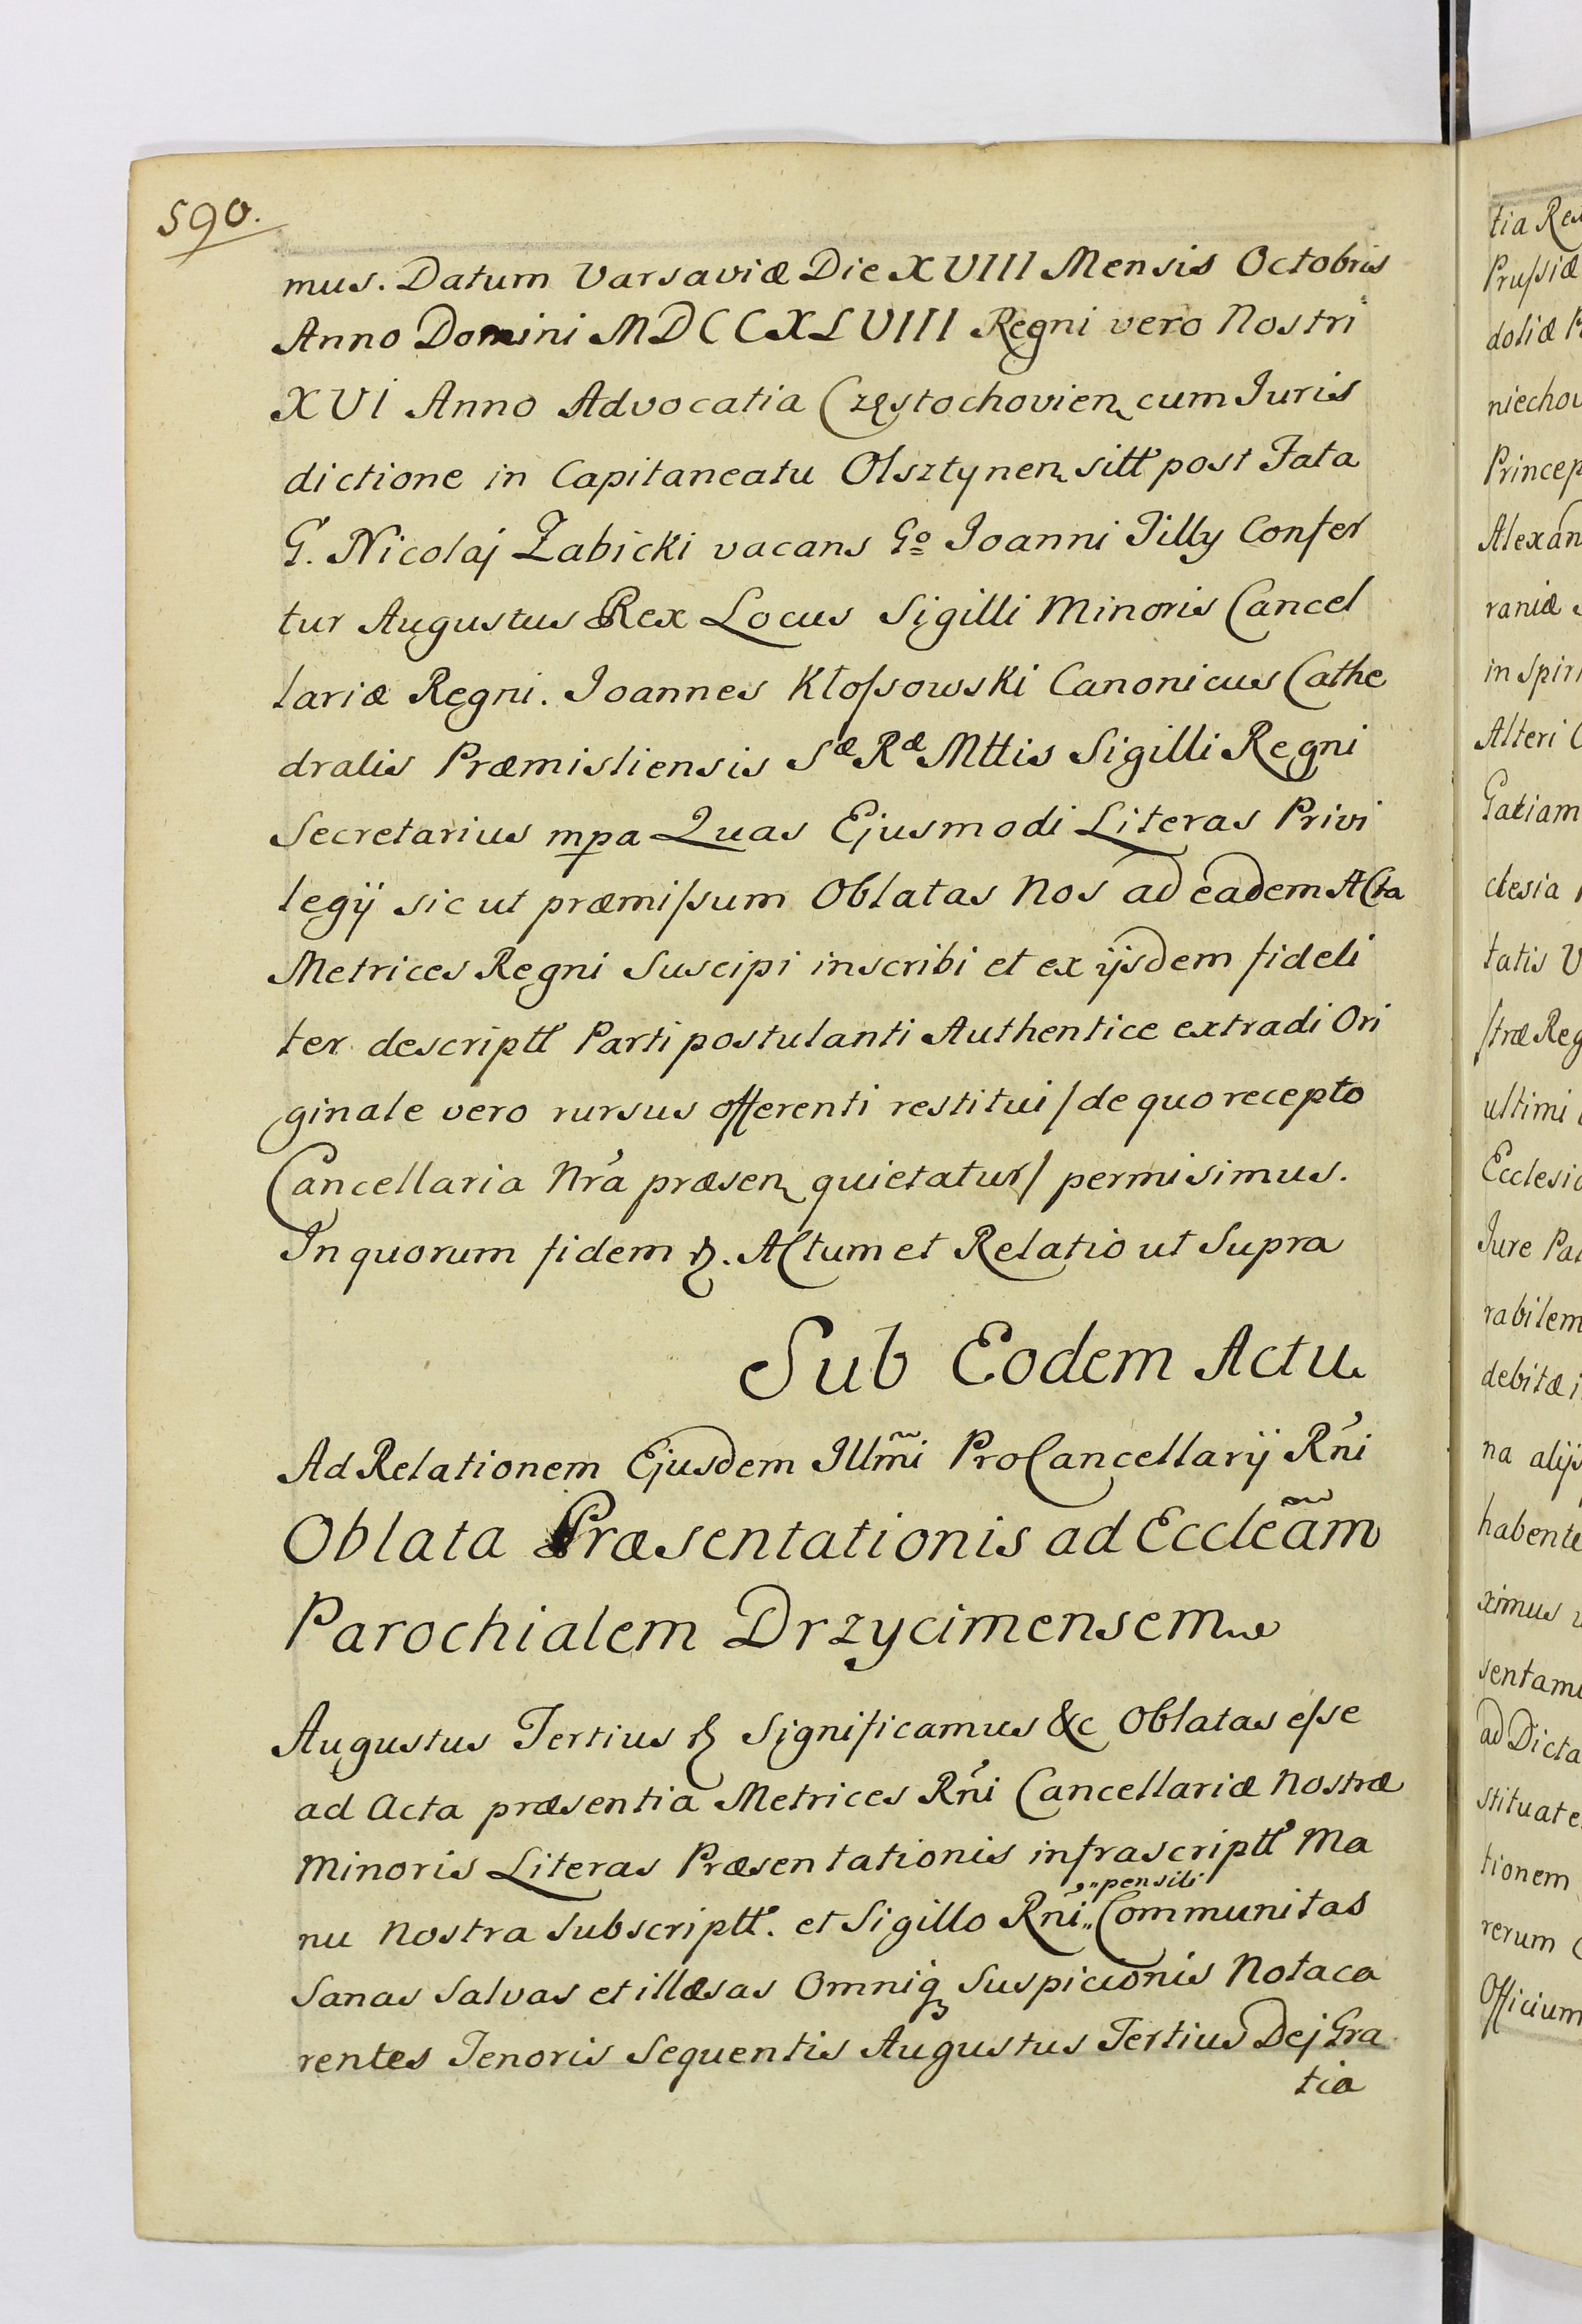 590.
mus. Datum Varsaviæ Die XVIII Mensis Octobris
Anno Domini MDCCXLVIII Regni vero Nostri
XVI Anno Advocatia Częstochovien cum Juris
dictione in Capitaneatu Olsztynen sitt post Fata
G. Nicolaj Zabicki vacans Gº Joanni Tilly Confer
tur Augustus Rex Locus Sigilli Minoris Cancel
lariæ Regni. Joannes Kłoſsowski Canonicus Cathe
dralis Præmisliensis Sæ Ræ Mttis Sigilli Regni
Secretarius mpa Quas Ejusmodi Literas Privi
legij sic ut præmiſsum Oblatas Nos ad eadem Acta
Metrices Regni Suscipi inscribi et ex ijsdem fideli
ter descriptt Parti postulanti Authentice extradi Ori
ginale vero rursus offerenti restitui / de quo recepto
Cancellaria Nra præsen quietatur / permisimus.
In quorum fidem &. Actum et Relatio ut Supra
Sub Eodem Actu
Ad Relationem Ejusdem Illmi ProCancellarij Rni
Oblata Præsentationis ad Eccleãm
Parochialem Drzycimensem
Augustus Tertius & Significamus &c Oblatas eſse
ad Acta præsentia Metrices Rni Cancellariæ Nostræ
Minoris Literas Præsentationis infrascriptt Ma
nu Nostra Subscriptt. et Sigillo Rni „pensili„ Communitas
Sanas Salvas et illæsas Omniq Suspicionis Nota ca
rentes Tenoris Sequentis Augustus Tertius Dej Gra
tia
tia
Pruſsiæ
doliæ
niechov
Princep
Alexan
raniæ
in Spiri
Alteri
Gatiam
clesia
tatis
ſtræ Reg
ultimi
Ecclesi
Jure Pa
rabilem
debitæ
na alijs
habente
ximus
sentamu
ad Dicta
stituat
tionem
rerum
Officium